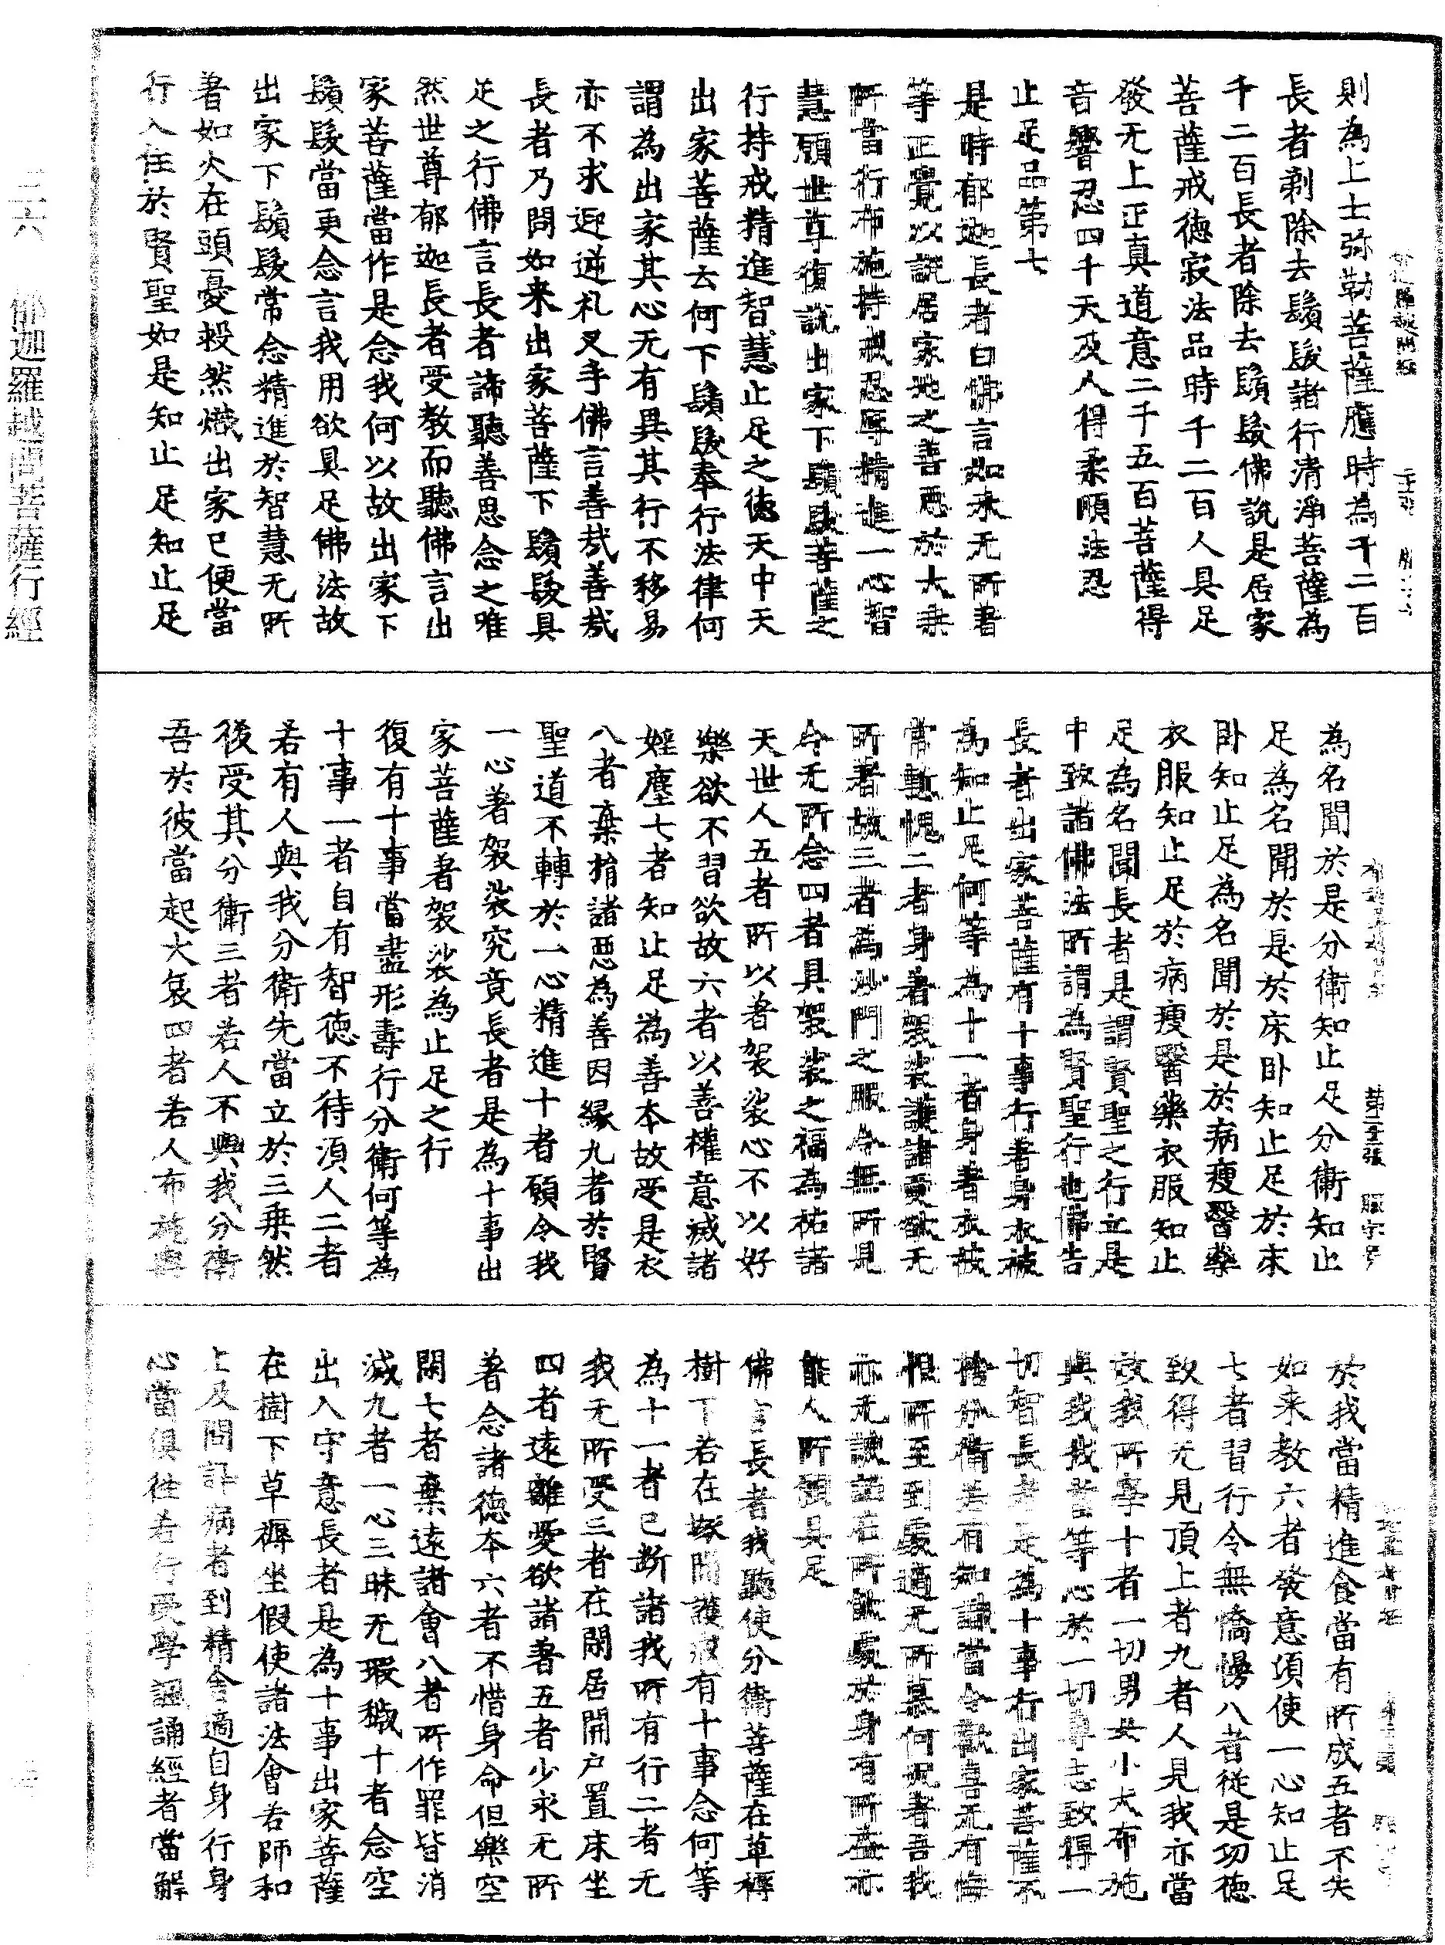 則為上士弥勒菩薩應時為千二百
長者剃除去鬚髮諸行清淨菩薩為
千二百長者除去鬚髮佛說是居家
菩薩戒德寂法品時千二百人具足
發无上正真道意二千五百菩薩得
音響忍四千天及人得柔順法忍
止足品第七
是時郁迦長者白佛言如来无所著
等正覺以說居家地之善惡於大乗
所當行布施持戒忍辱精進一心智
慧願世尊復說出家下鬚髮菩薩之
行持戒精進智慧止足之德天中天
出家菩薩云何下鬚髮奉行法律何
謂為出家其心无有異其行不移易
亦不求迎逆礼叉手佛言善㢤善㢤
長者乃問如来出家菩薩下鬚髮具
足之行佛言長者諦聽善思念之唯
然世尊郁迦長者受教而聽佛言出
家菩薩當作是念我何以故出家下
鬚髮當更念言我用欲具足佛法故
出家下鬚髮常念精進於智慧无所
著如火在頭憂毅然熾出家已便當
行入住於賢聖如是知止足知止足
為名聞於是分衛知止足分衛知止
足為名聞於是於床卧知止足於床
卧知止足為名聞於是於病瘦醫藥
衣服知止足於病瘦醫藥衣服知止
足為名聞長者是謂賢聖之行立是
中致諸佛法所謂為賢聖行也佛告
長者出家菩薩有十事行著身衣被
為知止足何等為十一者身著衣被
常慙愧二者身著袈裟護諸受欲无
所著故三者為沙門之服令無所見
令无所念四者具袈裟之福為祐諸
天世人五者所以著袈裟心不以好
樂欲不習欲故六者以善權意滅諸
婬塵七者知止足為善本故受是衣
八者棄捐諸惡為善因緣九者於賢
聖道不轉於一心精進十者願令我
一心著袈裟究竟長者是為十事出
家菩薩著袈裟為止足之行
復有十事當盡形壽行分衛何等為
十事一者自有智德不待須人二者
若有人與我分衛先當立於三乗然
後受其分衛三者若人不與我分衛
吾於彼當起大哀四者若人布施與
於我當精進食當有所成五者不失
如来教六者發意須使一心知止足
七者習行令無憍慢八者從是功德
致得无見頂上者九者人見我亦當
效我所學十者一切男女小大布施
與我我當等心於一切尊志致得一
切智長者是為十事行出家菩薩不
捨分衛若有知識當令歡喜无有悔
恨所至到處適无所慕何況者吾我
亦无諛諂在所能處於身有所益亦
能人所須具足
佛言長者我聽使分衛菩薩在草褥
樹下若在塚間護寂有十事念何等
為十一者已斷諸我所有行二者无
我无所受三者在閑居開户置床坐
四者遠離愛欲諸著五者少求无所
著念諸德本六者不惜身命但樂空
閑七者棄遠諸會八者所作罪皆消
滅九者一心三昧无瑕穢十者念空
出入守意長者是為十事出家菩薩
在樹下草褥坐假使諸法會若師和
上及問訊病者到精舍適自身行身
心當俱徃若行受學諷誦經者當解
三六　郁迦羅越問菩薩行經